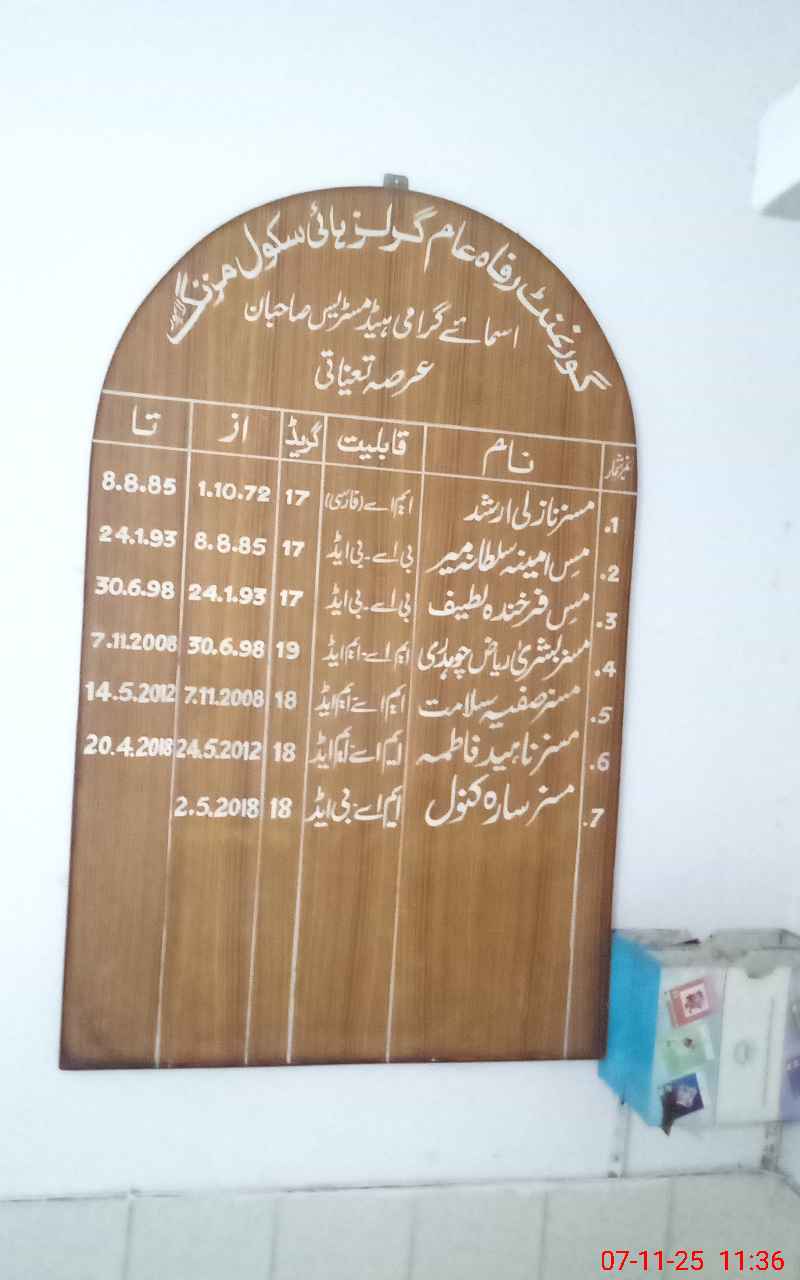 گورنمنٹ رفاہ عام گرلز ہائی سکول مزنگ لاہور
اسمائے گرامی ہیڈ مسٹریس صاحبان
عرصہ تعیناتی
نمبر شمار نام قابلیت گریڈ از تا
1. مسز نازلی ارشد ایم اے (فارسی) 17 1.10.72 8.8.85
2. مس امینہ سلطانہ میر بی اے-بی ایڈ 17 8.8.85 24.1.93
3. مس فرخندہ لطیف بی اے-بی ایڈ 17 24.1.93 30.6.98
4. مسز بشریٰ ریاض چوہدری ایم اے-ایم ایڈ 19 30.6.98 7.11.2008
5. مسز صفیہ سلامت ایم اے-ایم ایڈ 18 7.11.2008 14.5.2012
6. مسز ناہید فاطمہ ایم اے-ایم ایڈ 18 24.5.2012 20.4.2018
7. مسز سارہ کنول ایم اے-بی ایڈ 18 2.5.2018
07-11-25 11:36